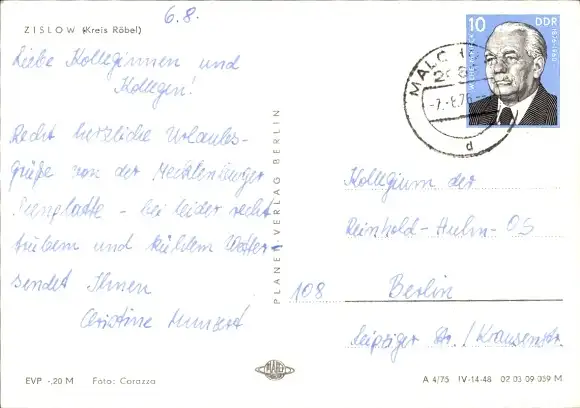 6.8.
ZISLOW (Kreis Röbel)
Liebe Kolleginnen und
Kollegen!
Recht herzliche Urlaubs-
grüße von der Mecklenburger
Seenplatte - bei leider recht
trübem und kühlem Wetter -
sendet Ihnen
Christine
EVP -,20 M
Foto: Corazza
PLANET-VERLAG BERLIN
10
DDR
WILHELM PIECK
1876-1960
MALCHOW
-7.-8.76
d
Kollegium der
Reinhold-Huhn-OS
108 Berlin
Leipziger Str. / Krausenstr.
A 4/75 IV-14-48 02 03 09 059 M